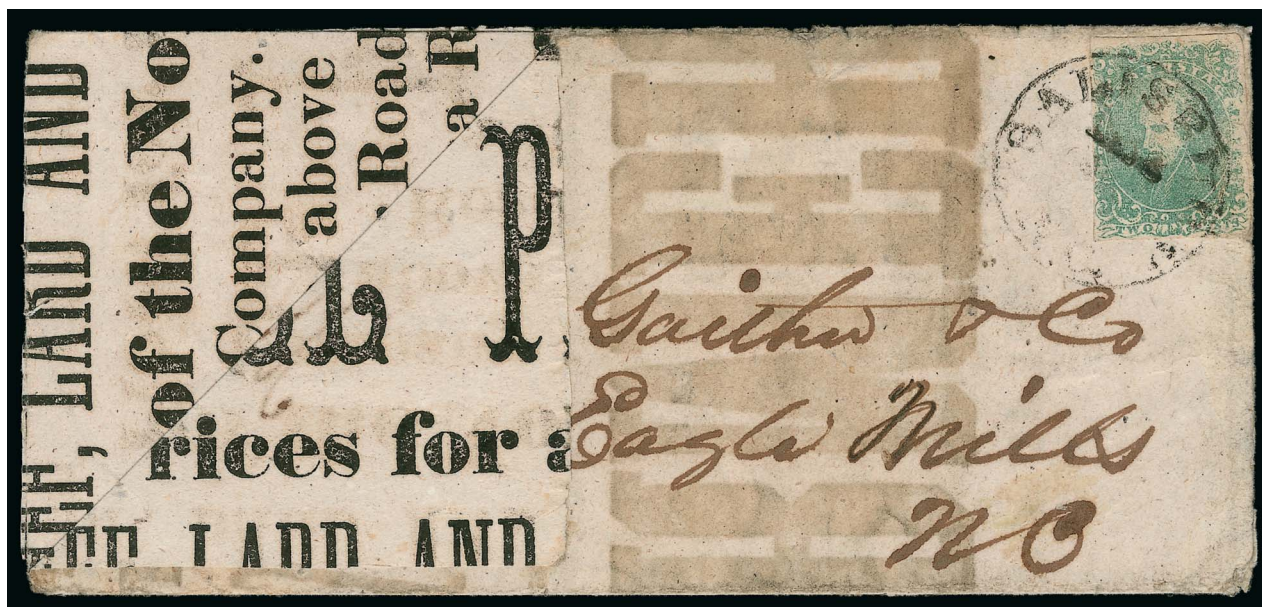 EEF, LARD AND
of the No
Company.
above
. Road
a R
L P
rices for a
EEF LARD AND
SALISB
TWO
Gaither & Co
Eagle Mills
N C